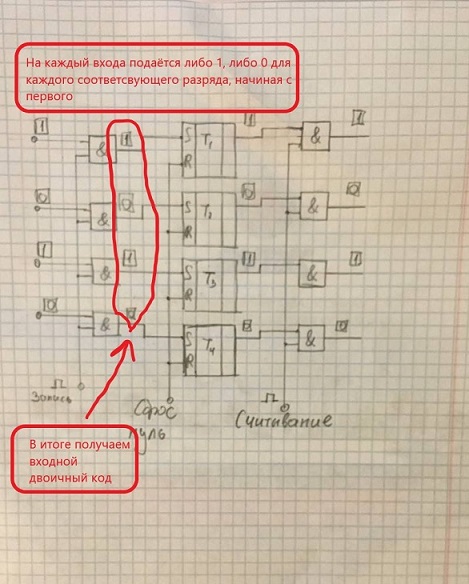 На каждый входа подаётся либо 1, либо 0 для
каждого соответсвующего разряда, начиная с
первого
1 & 1 S T1 1 & 1
R
0 & 0 S T2 0 & 0
R
1 & 1 S T3 1 & 1
R
0 & S T4 & 0
R
Запись
Сброс
нуль
Считывание
В итоге получаем
входной
двоичный код